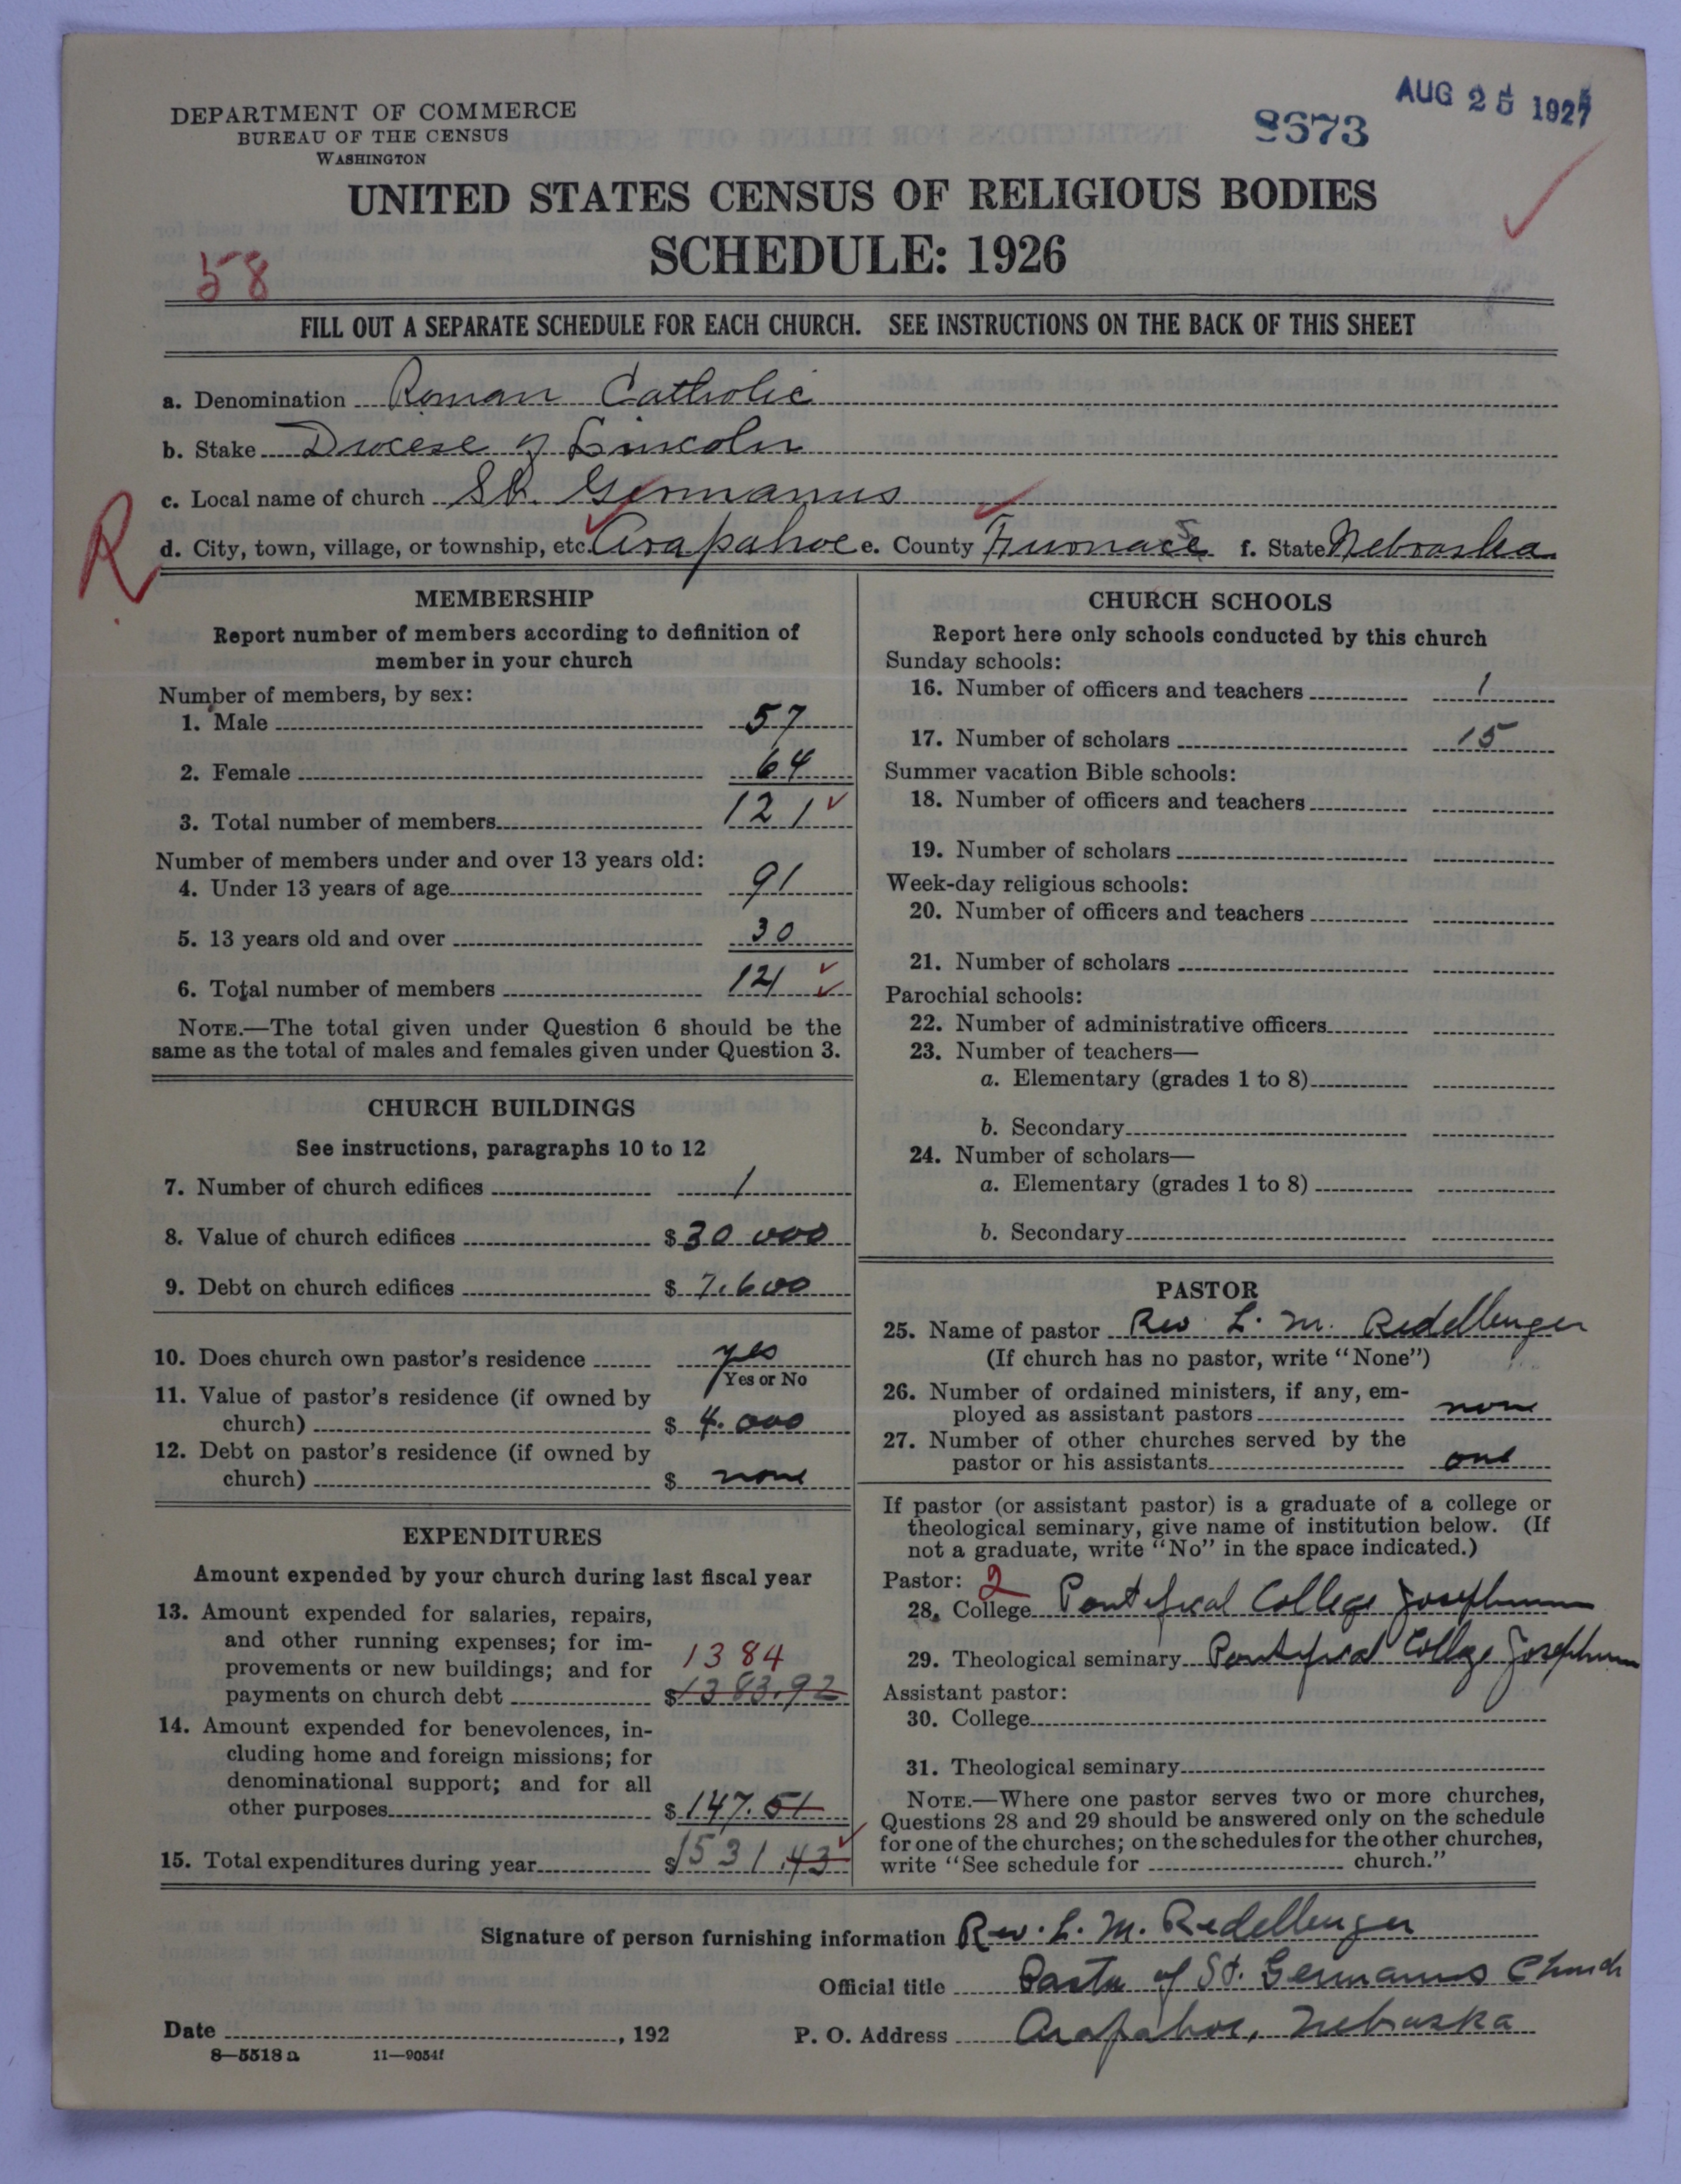 DEPARTMENT OF COMMERCE
BUREAU OF THE CENSUS
WASHINGTON
8673
AUG 25 1927
UNITED STATES CENSUS OF RELIGIOUS BODIES
SCHEDULE: 1926
58
FILL OUT A SEPARATE SCHEDULE FOR EACH CHURCH. SEE INSTRUCTIONS ON THE BACK OF THIS SHEET
a. Denomination Roman Catholic
b. Stake Diocese of Lincoln
c. Local name of church St. Germanus
R
d. City, town, village, or township, etc. Arapahoe e. County Furnace s f. State Nebraska
MEMBERSHIP
Report number of members according to definition of
member in your church
Number of members, by sex:
1. Male 57
2. Female 64
3. Total number of members 121
Number of members under and over 13 years old:
4. Under 13 years of age 91
5. 13 years old and over 30
6. Total number of members 121
NOTE.—The total given under Question 6 should be the
same as the total of males and females given under Question 3.
CHURCH BUILDINGS
See instructions, paragraphs 10 to 12
7. Number of church edifices 1
8. Value of church edifices $ 30 000
9. Debt on church edifices $ 7.600
10. Does church own pastor's residence yes
Yes or No
11. Value of pastor's residence (if owned by
church) $ 4.000
12. Debt on pastor's residence (if owned by
church) $ none
EXPENDITURES
Amount expended by your church during last fiscal year
13. Amount expended for salaries, repairs,
and other running expenses; for im-
provements or new buildings; and for 1384
payments on church debt $ 1383.92
14. Amount expended for benevolences, in-
cluding home and foreign missions; for
denominational support; and for all
other purposes $ 147.51
15. Total expenditures during year $ 1531.43
CHURCH SCHOOLS
Report here only schools conducted by this church
Sunday schools:
16. Number of officers and teachers 1
17. Number of scholars 15
Summer vacation Bible schools:
18. Number of officers and teachers
19. Number of scholars
Week-day religious schools:
20. Number of officers and teachers
21. Number of scholars
Parochial schools:
22. Number of administrative officers
23. Number of teachers—
a. Elementary (grades 1 to 8)
b. Secondary
24. Number of scholars—
a. Elementary (grades 1 to 8)
b. Secondary
PASTOR
25. Name of pastor Rev. L. M. Redellberger
(If church has no pastor, write "None")
26. Number of ordained ministers, if any, em-
ployed as assistant pastors none
27. Number of other churches served by the
pastor or his assistants one
If pastor (or assistant pastor) is a graduate of a college or
theological seminary, give name of institution below. (If
not a graduate, write "No" in the space indicated.)
Pastor: 2
28. College Pontifical College Josephinum
29. Theological seminary Pontifical College Josephinum
Assistant pastor:
30. College
31. Theological seminary
NOTE.—Where one pastor serves two or more churches,
Questions 28 and 29 should be answered only on the schedule
for one of the churches; on the schedules for the other churches,
write "See schedule for church."
Signature of person furnishing information Rev. L. M. Redellberger
Official title Pastor of St. Germanus Church
Date , 192
P. O. Address Arapahoe, Nebraska
8—5518 a 11—9054f